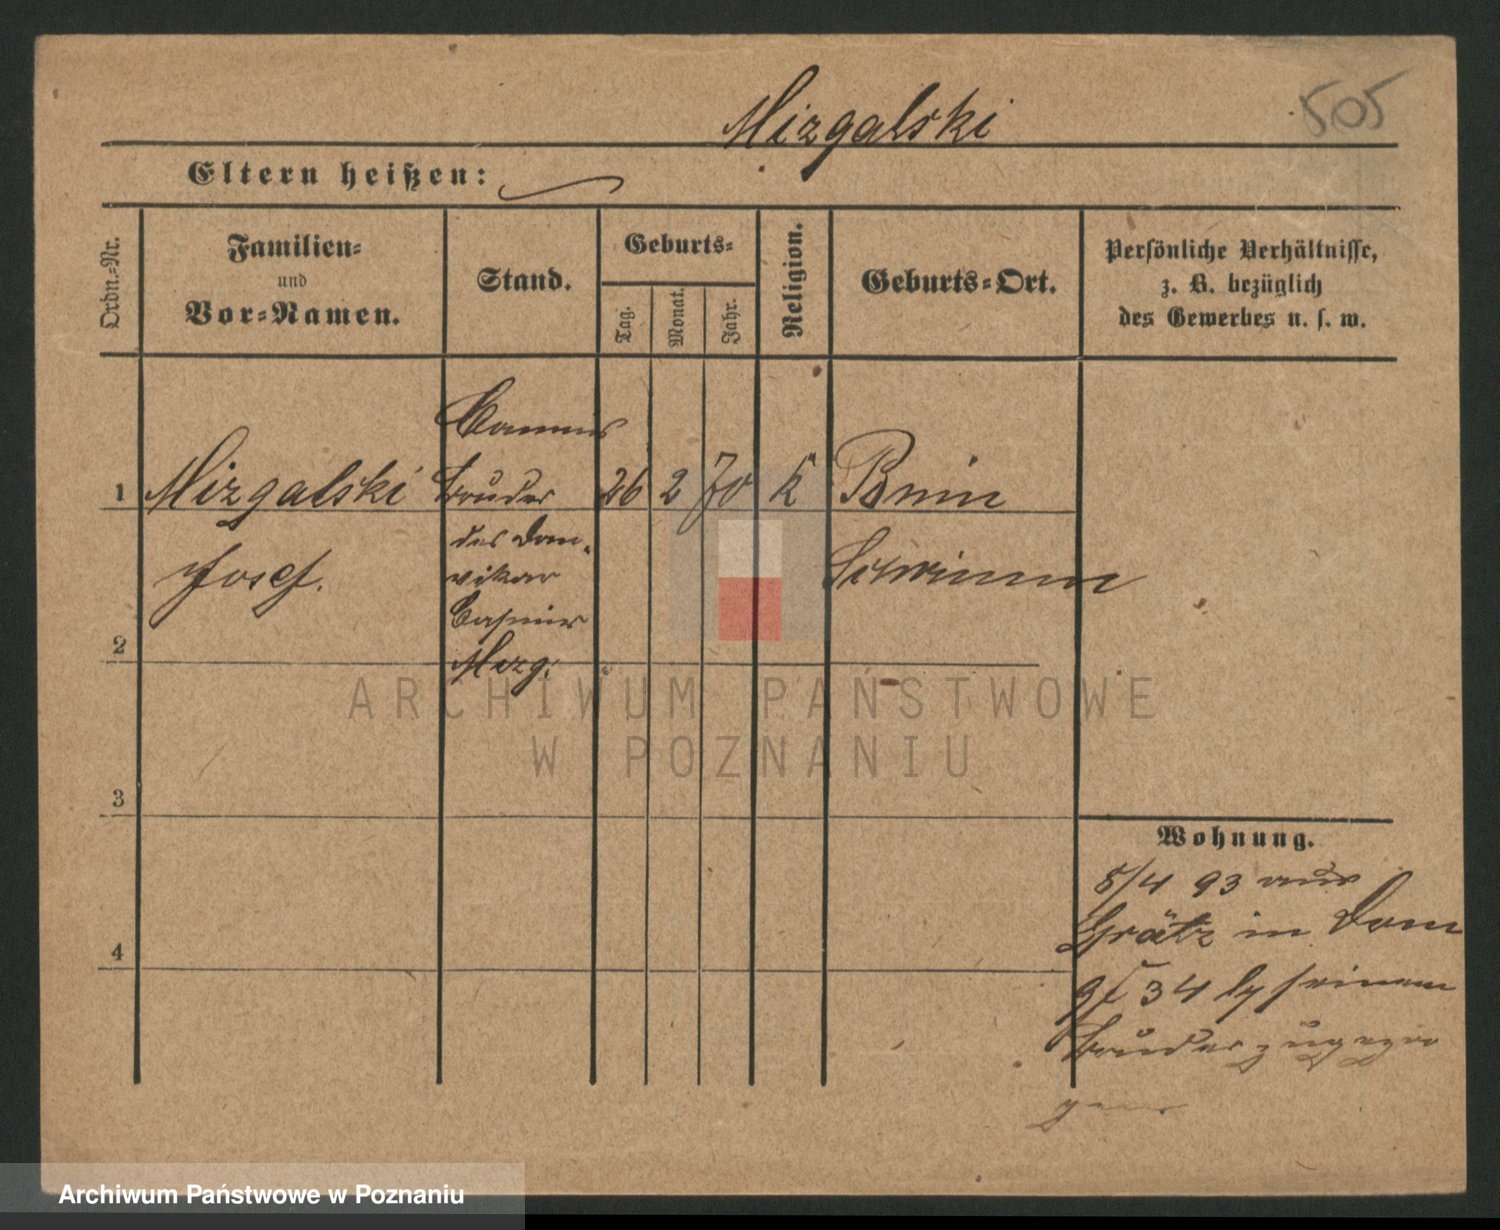 Mizgalski
505
Eltern heißen:
Ordn.-Nr.
Familien-
und
Vor-Namen.
Stand.
Geburts-
Tag.
Monat.
Jahr.
Religion.
Geburts-Ort.
Persönliche Verhältnisse,
z. B. bezüglich
des Gewerbes u. s. w.
1
Mizgalski
Josef.
Commis
Bruder
des Dom-
vikar
Casimir
Mizg.
26 2 70 k
Bnin
Schrimm
2
3
4
Wohnung.
5/4 93 aus
Grätz in Dom
34 seinem
Bruder zugezo
gen
ARCHIWUM PAŃSTWOWE
W POZNANIU
Archiwum Państwowe w Poznaniu